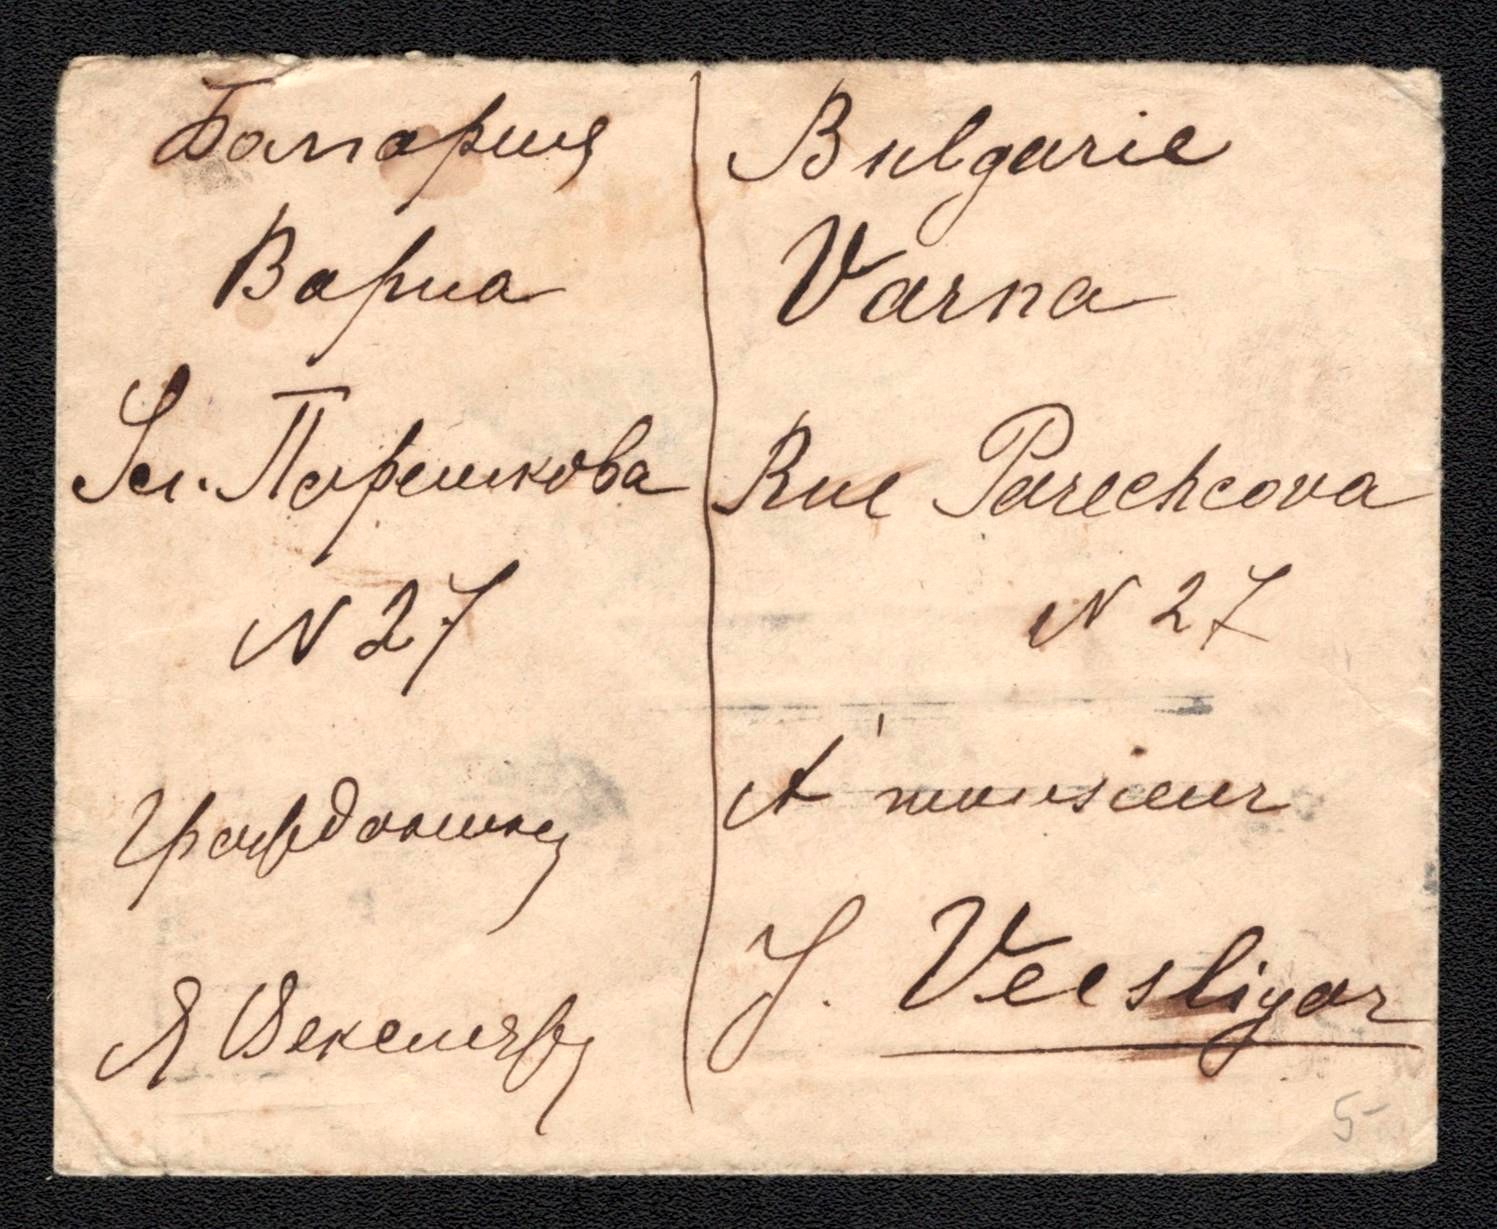 Болгария
Варна
Ул. Парешкова
N 27
Гражданину
Я Векслеру
Bulgarie
Varna
Rue Parechcova
N 27
A' monsieur
J. Vecsliyar
5-